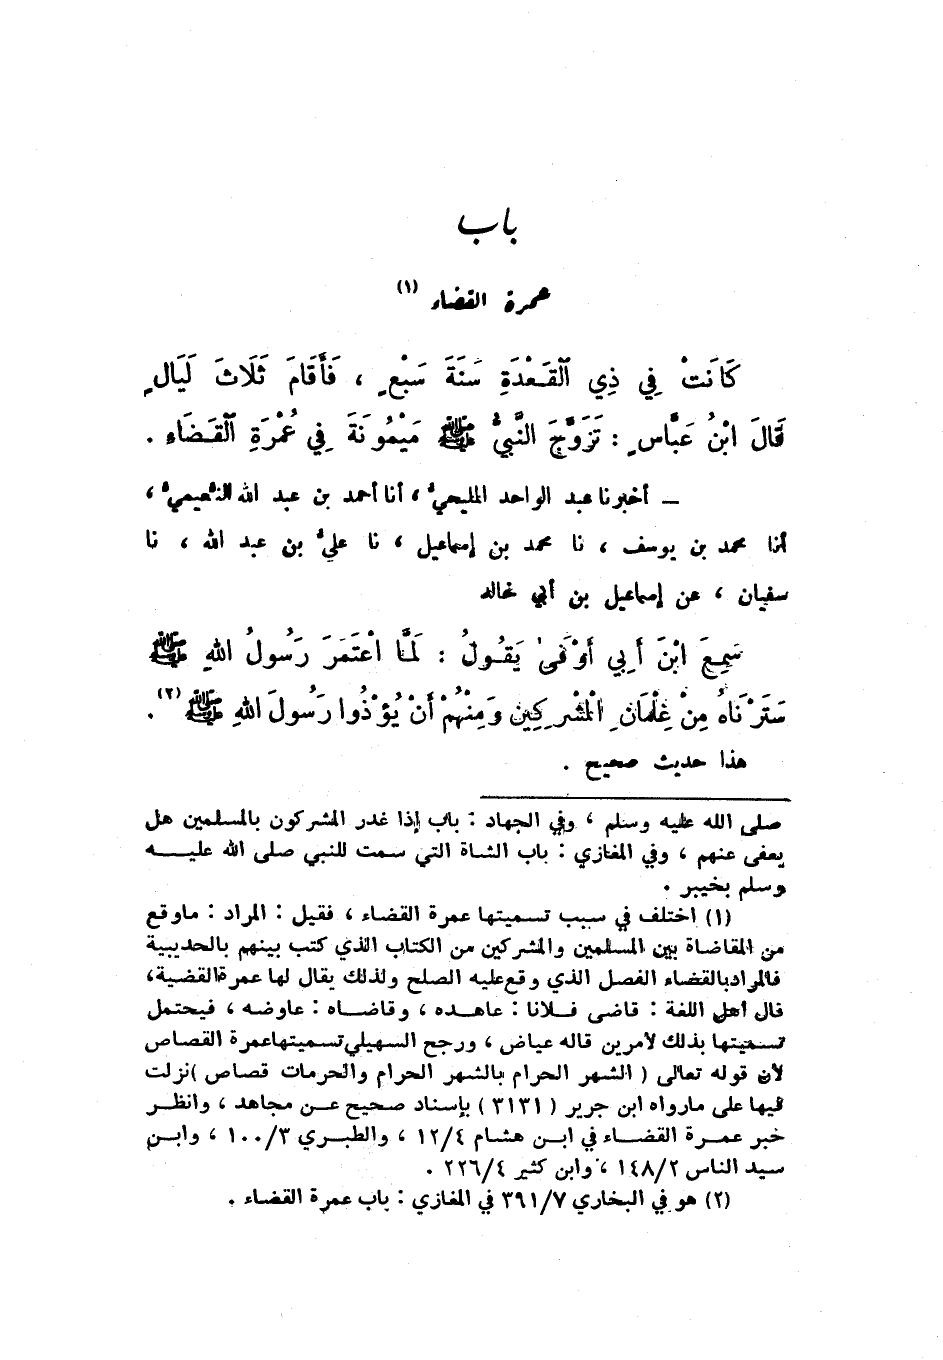 باب
عمرة القضاء (١)
كَانَتْ فِي ذِي ٱلقَعْدَةِ سَنَةَ سَبْعٍ ، فَأَقَامَ ثَلَاثَ لَيَالٍ
قَالَ ابْنُ عَبَّاسٍ : تَزَوَّجَ النَّبِيُّ ﷺ مَيْمُونَةَ فِي عُمْرَةِ ٱلقَضَاءِ .
– أخبرنا عبد الواحد المليحيُّ ، أنا أحمد بن عبد الله النُّعيميُّ ،
أنا محمد بن يوسف ، نا محمد بن إسماعيل ، نا عليُّ بن عبد الله ، نا
سفيان ، عن إسماعيل بن أبي خالد
سَمِعَ ابْنَ أَبِي أَوْفَىٰ يَقُولُ : لَمَّا اعْتَمَرَ رَسُولُ اللهِ ﷺ
سَتَرْنَاهُ مِنْ غِلْمَانِ الْمُشْرِكِينَ وَمِنْهُمْ أَنْ يُؤْذُوا رَسُولَ اللهِ ﷺ (٢) .
هذا حديث صحيح .
صلى الله عليه وسلم ، وفي الجهاد : باب إذا غدر المشركون بالمسلمين هل
يعفى عنهم ، وفي المغازي : باب الشاة التي سمت للنبي صلى الله عليـــه
وسلم بخيبر .
(١) اختلف في سبب تسميتها عمرة القضاء ، فقيل : المراد : ماوقع
من المقاضاة بين المسلمين والمشركين من الكتاب الذي كتب بينهم بالحديبية
فالمراد بالقضاء الفصل الذي وقع عليه الصلح ولذلك يقال لها عمرة القضية ،
قال أهل اللغة : قاضى فــلانا : عاهــده ، وقاضــاه : عاوضه ، فيحتمل
تسميتها بذلك لأمرين قاله عياض ، ورجح السهيلي تسميتها عمرة القصاص
لأن قوله تعالى ( الشهر الحرام بالشهر الحرام والحرمات قصاص ) نزلت
فيها على مارواه ابن جرير ( ٣١٣١ ) بإسناد صحيح عــن مجاهد ، وانظــر
خبر عمــرة القضــاء في ابــن هشام ١٢/٤ ، والطبــري ١٠٠/٣ ، وابــن
سيد الناس ١٤٨/٢ ، وابن كثير ٢٢٦/٤ .
(٢) هو في البخاري ٣٩١/٧ في المغازي : باب عمرة القضاء .